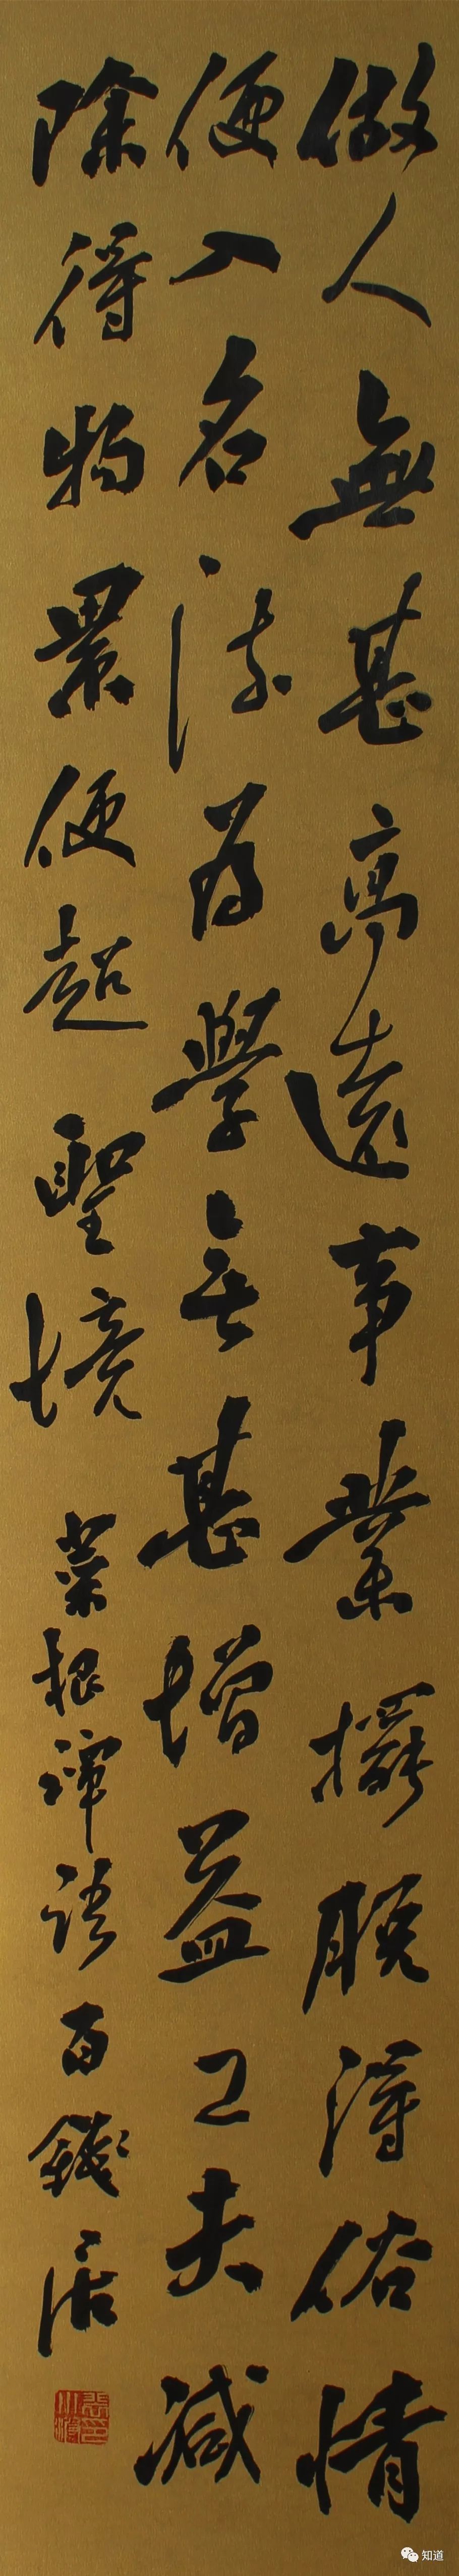 做人無甚高遠事業擺脫得俗情
便入名流為學無甚增益工夫減
除得物累便超聖境
菜根譚語百鐵居
知道